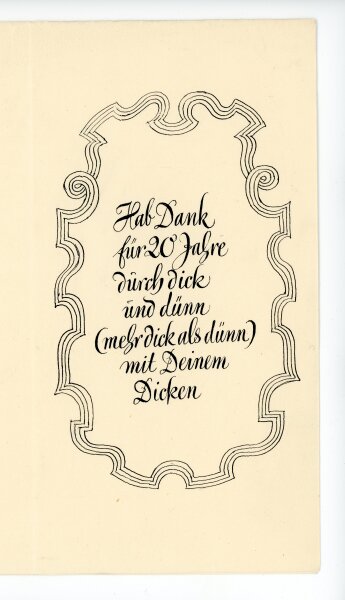 Hab Dank
für 20 Jahre
durch dick
und dünn
(mehr dick als dünn)
mit Deinem
Dicken